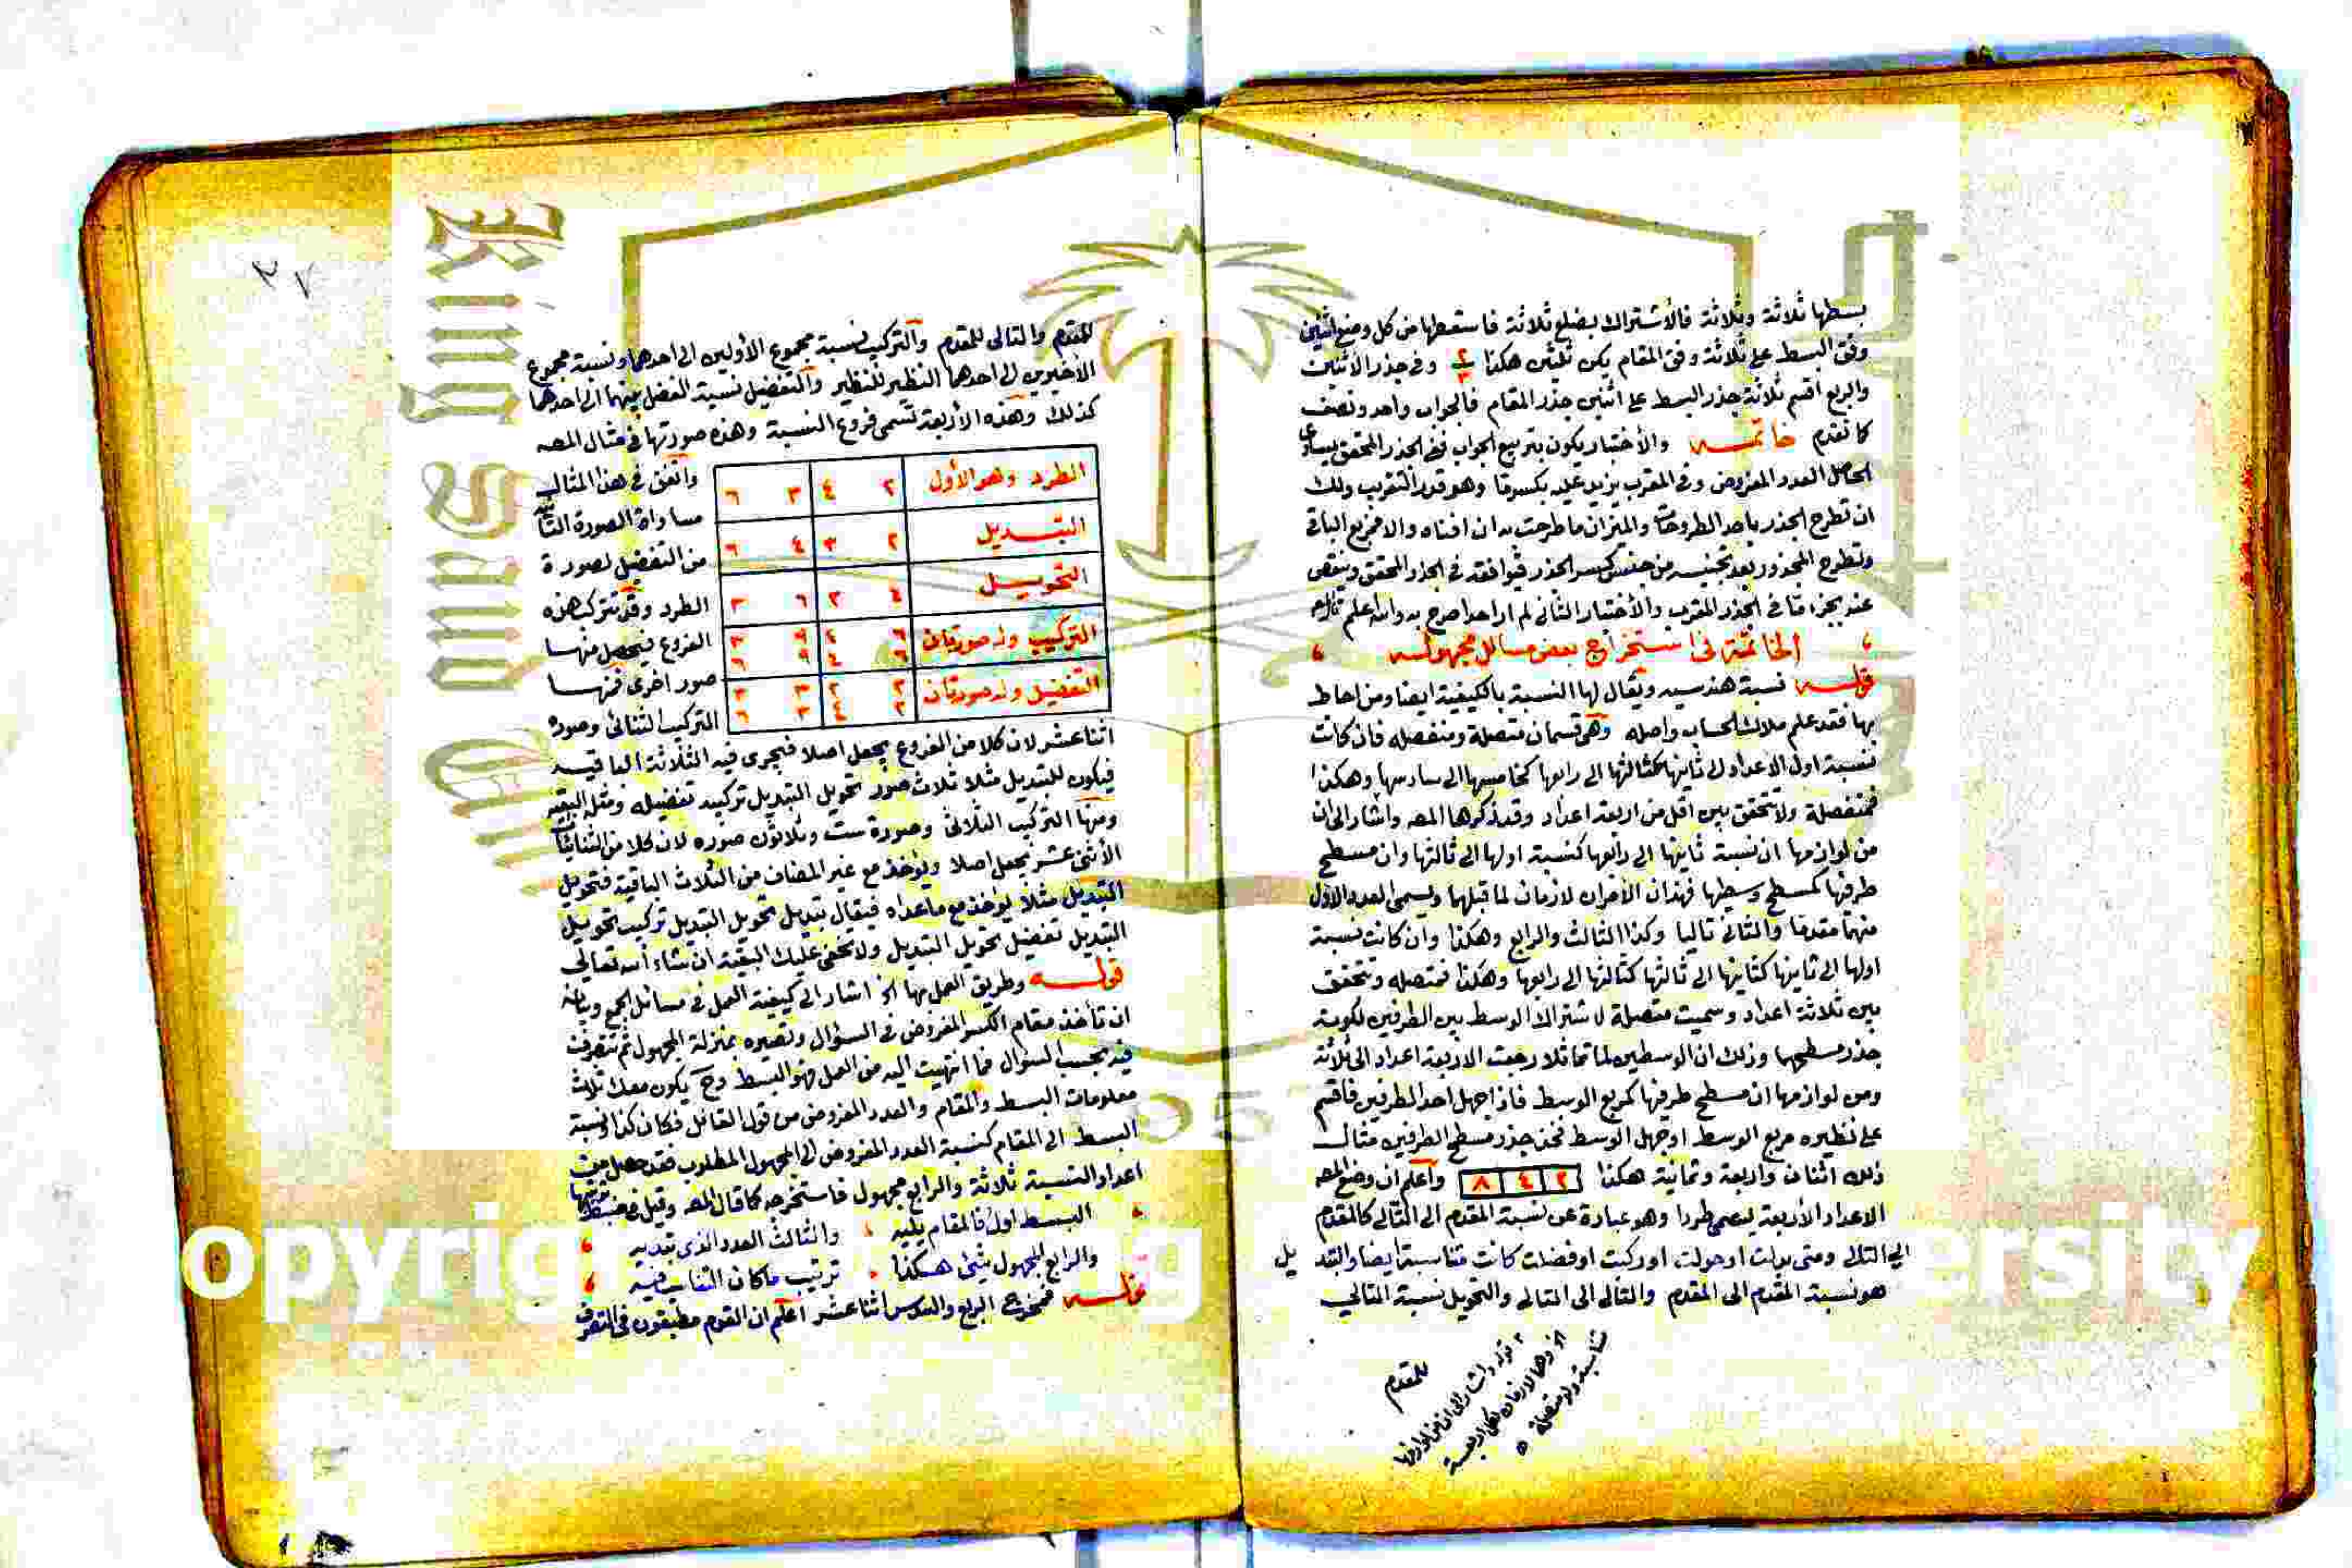 بسطها ثلاثة وثلاثة فالأشتراك بضلع ثلاثة فاسقطها من كل وضع اثنين
وفق البسط على ثلاثة وفق المقام يكن ثلثين هكذا ٢/٣ وفى جذر الاثنين
والربع اقسم ثلاثة جذر البسط على اثنين جذر المقام فالجواب واحد ونصف
كما تقدم خاتمه والأختبار يكون بتربيع الجواب ففى الجذر المحقق يساوى
الحاصل العدد المفروض وفى المقرب يزيد عليه بكسر ما وهو قدر التقريب ولك
ان تطرح الجذر باحد الطروحات والميزان ما طرحت به ان افناه والا فربع الباقى
وتطرح المجذور بعد تجنيسه من جنس كسر الجذر فيوافقه فى الجذر المحقق وينقص
عنه بجزء ما فى الجذر المقرب والأختبار الثانى لم ار احدا صرح به والله اعلم
الخاتمة فى استخراج بعض مسائل مجهوله
قوله نسبة هندسيه ويقال لها النسبة بالكيفية ايضا ومن احاط
بها فقد علم ملاك الحساب واصله وهى قسمان متصلة ومنفصله فان كانت
نسبة اول الاعداد الى ثانيها كثالثها الى رابعها كخامسها الى سادسها وهكذا
فمنفصلة ولا تتحقق بين اقل من اربعة اعداد وقد ذكرها المصه واشار الى ان
من لوازمها ان نسبة ثانيها الى رابعها كنسبة اولها الى ثالثها وان مسطح
طرفيها كمسطح وسطيها فهذان الأمران لازمان لما قبلهما ويسمى العدد الأول
منهما مقدما والثانى تاليا وكذا الثالث والرابع وهكذا وان كانت نسبة
اولها الى ثانيها كثانيها الى ثالثها كثالثها الى رابعها وهكذا فمتصله وتتحقق
بين ثلاثة اعداد وسميت متصلة لاشتراك الوسط بين الطرفين لكونه
جذر مسطحها وذلك ان الوسطين لما تماثلا رجعت الاربعة اعداد الى ثلاثة
ومن لوازمها ان مسطح طرفيها كمربع الوسط فاذا جهل احد الطرفين فاقسم
على نظيره مربع الوسط او جهل الوسط فخذ جذر مسطح الطرفين مثال
ذلك اثنان واربعة وثمانية هكذا ٢ ٤ ٨ وأعلم ان وضع المصه
الاعداد الأربعة يسمى طردا وهو عبارة عن نسبة المقدم الى التالى كالمقدم
الى التالى ومتى بدلت او حولت او ركبت او فضلت كانت متناسبة ايضا والتبديل
هو نسبة المقدم الى المقدم والتالى الى التالى والتحويل نسبة التالى
للمقدم
قوله واشار الى ان من لوازمها
٢٧
للمقدم والتالى للمقدم والتركيب نسبة مجموع الأولين الى احدهما ونسبة مجموع
الاخيرين الى احدهما النظير للنظير والتفضيل نسبة الفضل بينهما الى احدهما
كذلك وهذه الأربعة تسمى فروع النسبة وهذه صورتها فى مثال المصه
الطرد وهو الأول ٢ ٤ ٣ ٦
التبديل ٢ ٣ ٤ ٦
التحويل ٤ ٢ ٦ ٣
التركيب وله صورتان ٦ ٤ ٩ ٣
٦ ٤ ٩ ٦
التفضيل وله صورتان ٢ ٢ ٣ ٣
٢ ٤ ٣ ٦
واتفق فى هذا المثال
مساواة الصورة الثانية
من التفضيل لصورة
الطرد وقد تتركب هذه
الفروع فيحصل منها
صور اخرى فمنها
التركيب الثنائى وصوره
اثنا عشر لان كلا من الفروع يجعل اصلا فيجرى فيه الثلاثة الباقيه
فيكون للتبديل مثلا ثلاث صور تحويل التبديل تركيبه تفضيله ومثله البقيه
ومنها التركيب الثلاثى وصوره ست وثلاثون صوره لان كلا من الثنائيات
الأثنى عشر يجعل اصلا ويؤخذ مع غير المضاف من الثلاث الباقية فتحويل
التبديل مثلا يؤخذ مع ما عداه فيقال تبديل تحويل التبديل تركيب تحويل
التبديل تفضيل تحويل التبديل ولا تخفى عليك البقية ان شاء الله تعالى
قوله وطريق العمل بها الخ اشار الى كيفية العمل فى مسائل الجمع وبيانه
ان تأخذ مقام الكسر المفروض فى السؤال وتصيره بمنزلة المجهول ثم تتصرف
فيه بحسب السؤال فما انتهيت اليه من العمل فهو البسط وح يكون معك ثلاث
معلومات البسط والمقام والعدد المفروض من قول القائل فكان كذا ونسبة
البسط الى المقام كنسبة العدد المفروض الى المجهول المطلوب فقد حصل من
اعداد النسبة ثلاثة والرابع مجهول فاستخرجه كما قال المصه وقيل فى ضبط ترتيبها
البسط اول فالمقام يليه والثالث العدد الذى تبديه
والرابع المجهول شئ هكذا ترتيب ما كان التناسب فيه
قوله فمخرج الربع والسدس اثنا عشر اعلم ان القوم مطبقون فى التصرف